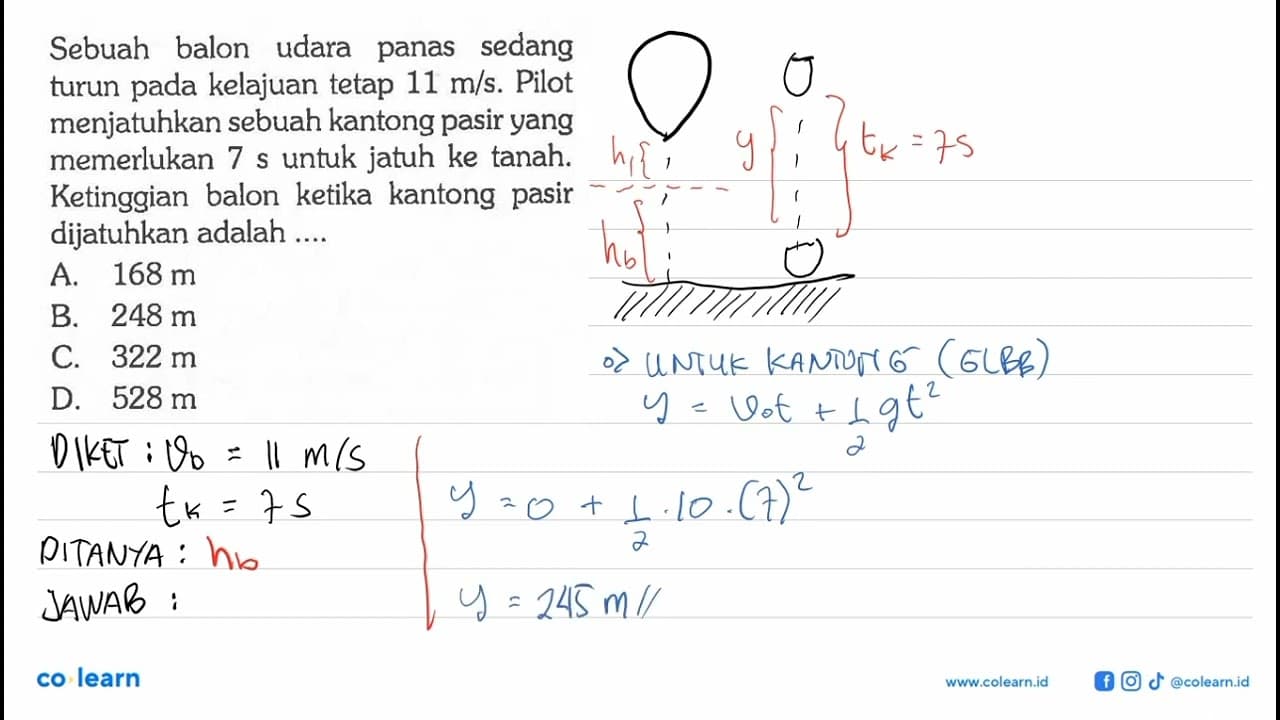 Sebuah balon udara panas sedang
turun pada kelajuan tetap 11 m/s. Pilot
menjatuhkan sebuah kantong pasir yang
memerlukan 7 s untuk jatuh ke tanah.
Ketinggian balon ketika kantong pasir
dijatuhkan adalah ....
A. 168 m
B. 248 m
C. 322 m
D. 528 m
h₁
hb
y
tK = 7s
DIKET : vb = 11 m/s
tK = 7 s
DITANYA : hb
JAWAB :
=> UNTUK KANTONG (GLBB)
y = v₀t + 1/2 gt²
y = 0 + 1/2 . 10 . (7)²
y = 245 m //
co learn
www.colearn.id
@colearn.id